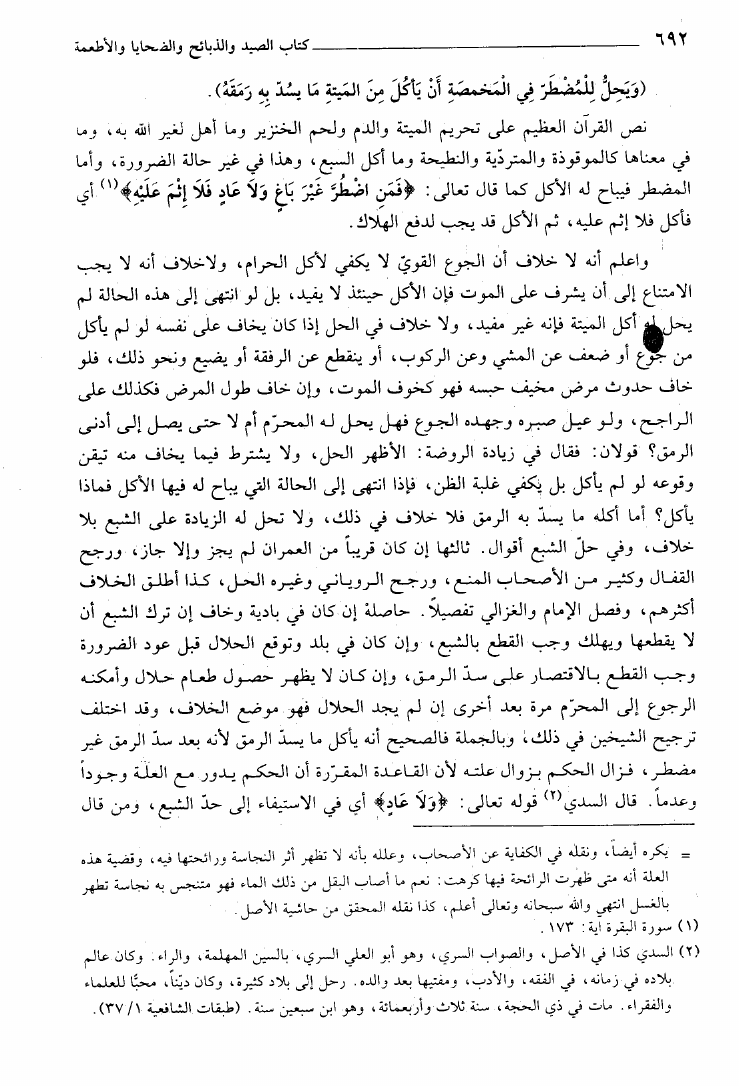 ٦٩٢ كتاب الصيد والذبائح والضحايا والأطعمة
(وَيَحِلُّ لِلْمُضْطَرّ فِي الْمَخمصَةِ أَنْ يَأكُلَ مِنَ المَيتةِ مَا يسُدّ بِهِ رَمَقَهُ).
نص القرآن العظيم على تحريم الميتة والدم ولحم الخنزير وما أهل لغير الله به، وما
في معناها كالموقوذة والمتردّية والنطيحة وما أكل السبع، وهذا في غير حالة الضرورة، وأما
المضطر فيباح له الأكل كما قال تعالى: ﴿فَمَنِ اضْطُرَّ غَيْرَ بَاغٍ وَلاَ عَادٍ فَلاَ إِثْمَ عَلَيْهِ﴾(١) أي
فأكل فلا إثم عليه، ثم الأكل قد يجب لدفع الهلاك.
واعلم أنه لا خلاف أن الجوع القويّ لا يكفي لأكل الحرام، ولاخلاف أنه لا يجب
الامتناع إلى أن يشرف على الموت فإن الأكل حينئذ لا يفيد، بل لو انتهى إلى هذه الحالة لم
يحل له أكل الميتة فإنه غير مفيد، ولا خلاف في الحل إذا كان يخاف على نفسه لو لم يأكل
من جوع أو ضعف عن المشي وعن الركوب، أو ينقطع عن الرفقة أو يضيع ونحو ذلك، فلو
خاف حدوث مرض مخيف حبسه فهو كخوف الموت، وإن خاف طول المرض فكذلك على
الراجح، ولو عيل صبره وجهده الجوع فهل يحل له المحرّم أم لا حتى يصل إلى أدنى
الرمق؟ قولان: فقال في زيادة الروضة: الأظهر الحل، ولا يشترط فيما يخاف منه تيقن
وقوعه لو لم يأكل بل يكفي غلبة الظن، فإذا انتهى إلى الحالة التي يباح له فيها الأكل فماذا
يأكل؟ أما أكله ما يسدّ به الرمق فلا خلاف في ذلك، ولا تحل له الزيادة على الشبع بلا
خلاف، وفي حلّ الشبع أقوال. ثالثها إن كان قريباً من العمران لم يجز وإلا جاز، ورجح
القفال وكثير من الأصحاب المنع، ورجح الروياني وغيره الحل، كذا أطلق الخلاف
أكثرهم، وفصل الإمام والغزالي تفصيلاً. حاصلهُ إن كان في بادية وخاف إن ترك الشبع أن
لا يقطعها ويهلك وجب القطع بالشبع، وإن كان في بلد وتوقع الحلال قبل عود الضرورة
وجب القطع بالاقتصار على سدّ الرمق، وإن كان لا يظهر حصول طعام حلال وأمكنه
الرجوع إلى المحرّم مرة بعد أخرى إن لم يجد الحلال فهو موضع الخلاف، وقد اختلف
ترجيح الشيخين في ذلك، وبالجملة فالصحيح أنه يأكل ما يسدّ الرمق لأنه بعد سدّ الرمق غير
مضطر، فزال الحكم بزوال علته لأن القاعدة المقرّرة أن الحكم يدور مع العلّة وجوداً
وعدماً. قال السدي(٢) قوله تعالى: ﴿وَلاَ عَادٍ﴾ أي في الاستيفاء إلى حدّ الشبع، ومن قال
= يكره أيضاً، ونقله في الكفاية عن الأصحاب، وعلله بأنه لا تظهر أثر النجاسة ورائحتها فيه، وقضية هذه
العلة أنه متى ظهرت الرائحة فيها كرهت: نعم ما أصاب البقل من ذلك الماء فهو متنجس به نجاسة تطهر
بالغسل انتهي والله سبحانه وتعالى أعلم، كذا نقله المحقق من حاشية الأصل.
(١) سورة البقرة آية: ١٧٣.
(٢) السدي كذا في الأصل، والصواب السري، وهو أبو العلي السري، بالسين المهملة، والراء. وكان عالم
بلاده في زمانه، في الفقه، والأدب، ومفتيها بعد والده. رحل إلى بلاد كثيرة، وكان ديّناً، محبًّا للعلماء
والفقراء. مات في ذي الحجة، سنة ثلاث وأربعمائة، وهو ابن سبعين سنة. (طبقات الشافعية ١/ ٣٧).